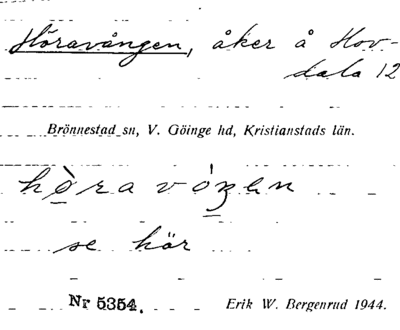 Höravången, åker å Hov-
dala 12
Brönnestad sn, V. Göinge hd, Kristianstads län.
se här
Nr 5354. Erik W. Bergenrud 1944.